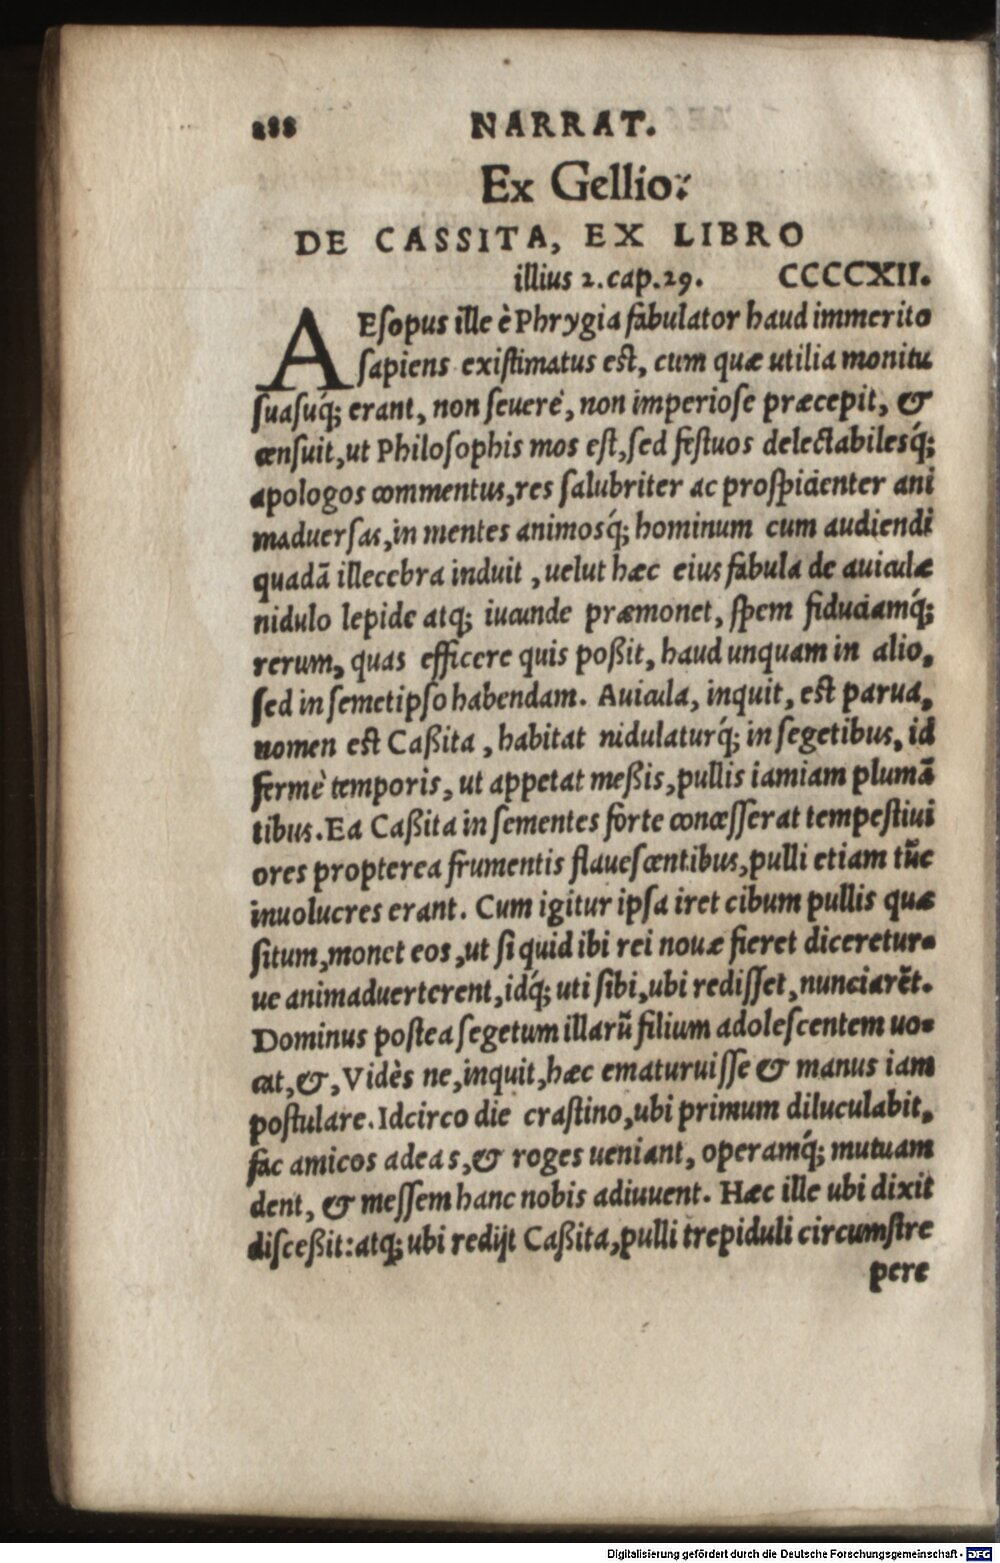 288 NARRAT.
Ex Gellio.
DE CASSITA, EX LIBRO
illius 2. cap. 29. CCCCXII.
AEſopus ille è Phrygia fabulator haud immerito
ſapiens exiſtimatus eſt, cum quæ utilia monitu
ſuaſuq́; erant, non ſeuerè, non imperioſe præcepit, &
cenſuit, ut Philoſophis mos eſt, ſed feſtuos delectabilesq́;
apologos commentus, res ſalubriter ac proſpicienter ani
maduerſas, in mentes animosq́; hominum cum audiendi
quadã illecebra induit, uelut hæc eius fabula de auiculæ
nidulo lepide atq; iucunde præmonet, ſpem fiduciamq́;
rerum, quas efficere quis poßit, haud unquam in alio,
ſed in ſemetipſo habendam. Auicula, inquit, eſt parua,
nomen eſt Caßita, habitat nidulaturq́; in ſegetibus, id
fermè temporis, ut appetat meßis, pullis iamiam plumã
tibus. Ea Caßita in ſementes forte conceſſerat tempeſtiui
ores propterea frumentis flaueſcentibus, pulli etiam tũc
inuolucres erant. Cum igitur ipſa iret cibum pullis quæ
ſitum, monet eos, ut ſi quid ibi rei nouæ fieret diceretur-
ue animaduerterent, idq́; uti ſibi, ubi rediſſet, nunciarẽt.
Dominus poſtea ſegetum illarũ filium adoleſcentem uo-
cat, &, Vidès ne, inquit, hæc ematuruiſſe & manus iam
poſtulare. Idcirco die craſtino, ubi primum diluculabit,
fac amicos adeas, & roges ueniant, operamq́; mutuam
dent, & meſſem hanc nobis adiuuent. Hæc ille ubi dixit
diſceßit: atq; ubi redijt Caßita, pulli trepiduli circumſtre
pere
Digitalisierung gefördert durch die Deutsche Forschungsgemeinschaft - DFG